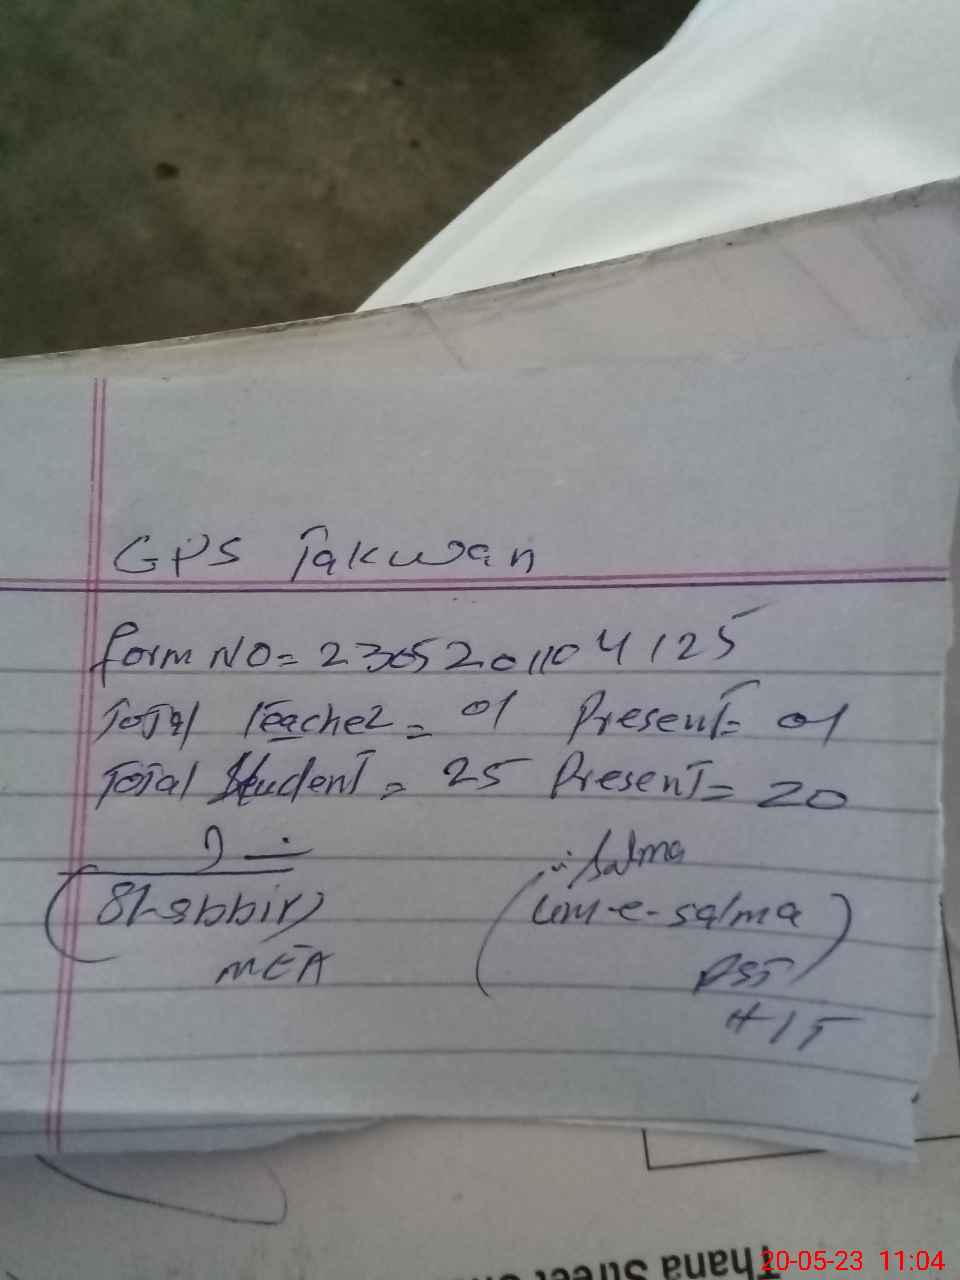 GPS Takwan
form NO = 2305201104125
Total Teacher = 01 Present = 01
Total Student = 25 Present = 20
Salma
(Shabbir) (um-e-salma)
MEA PST
Thana Street
20-05-23 11:04